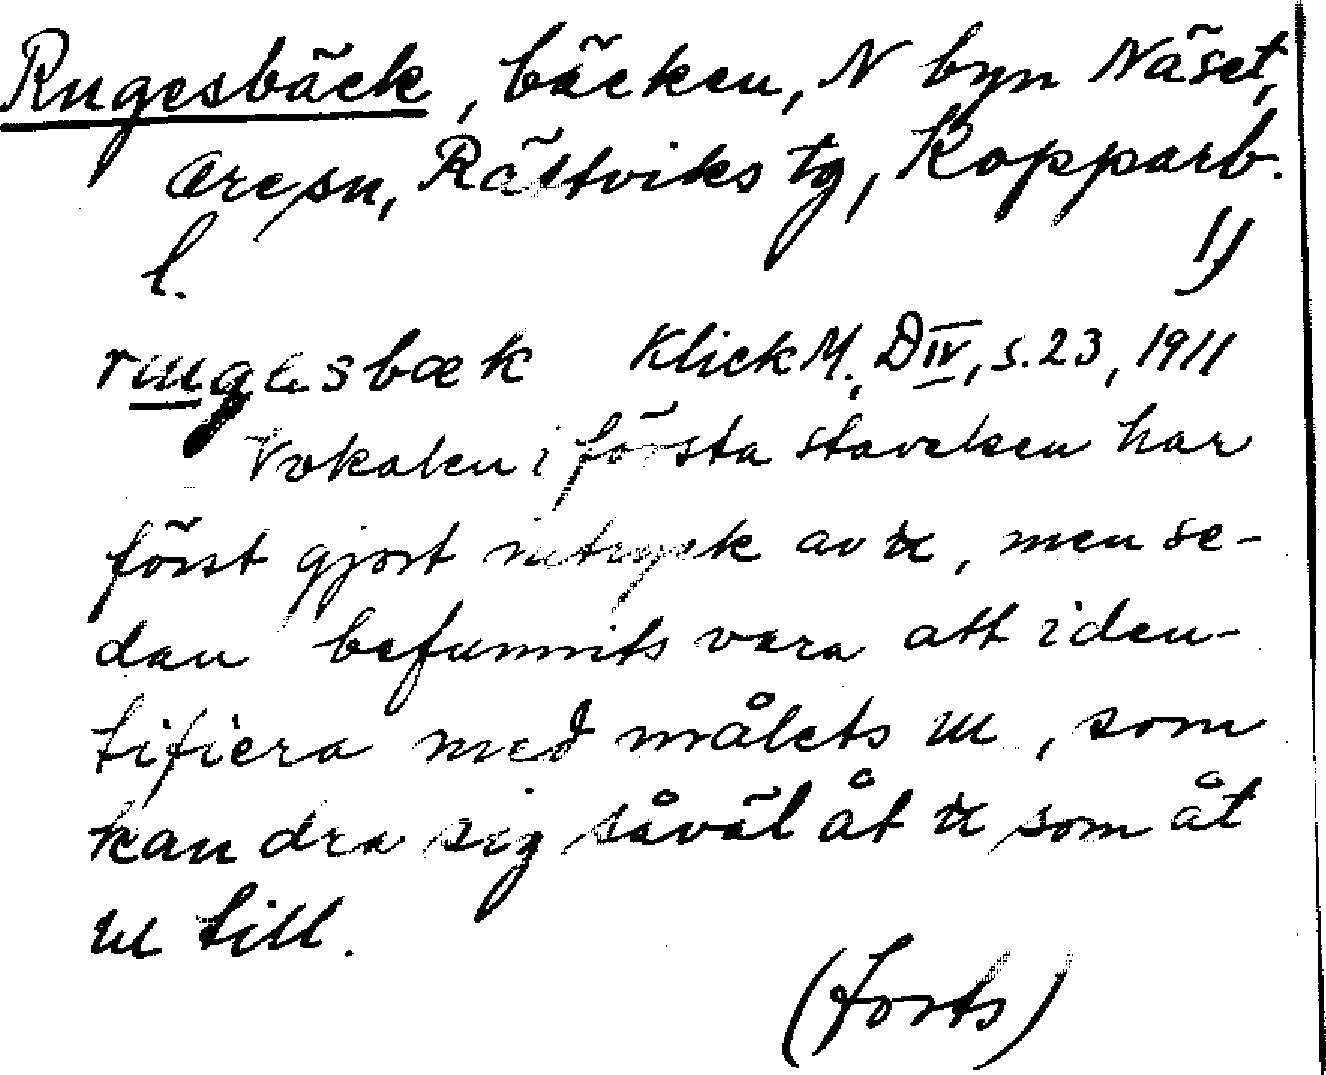 Rugesbäck, bäcken, N byn Näset,
Ore sn, Rättviks tg, Kopparb.
l. 1)
Klick M., D IV, s. 23, 1911
Vokalen i första stavelsen har
först gjort intryck av ʉ, men se-
dan befunnits vara att iden-
tifiera med målets ɯ, som
kan dra sig såväl åt ʉ som åt
till.
(forts)